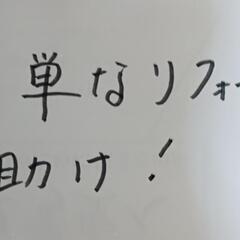 単なリフォ
助け!